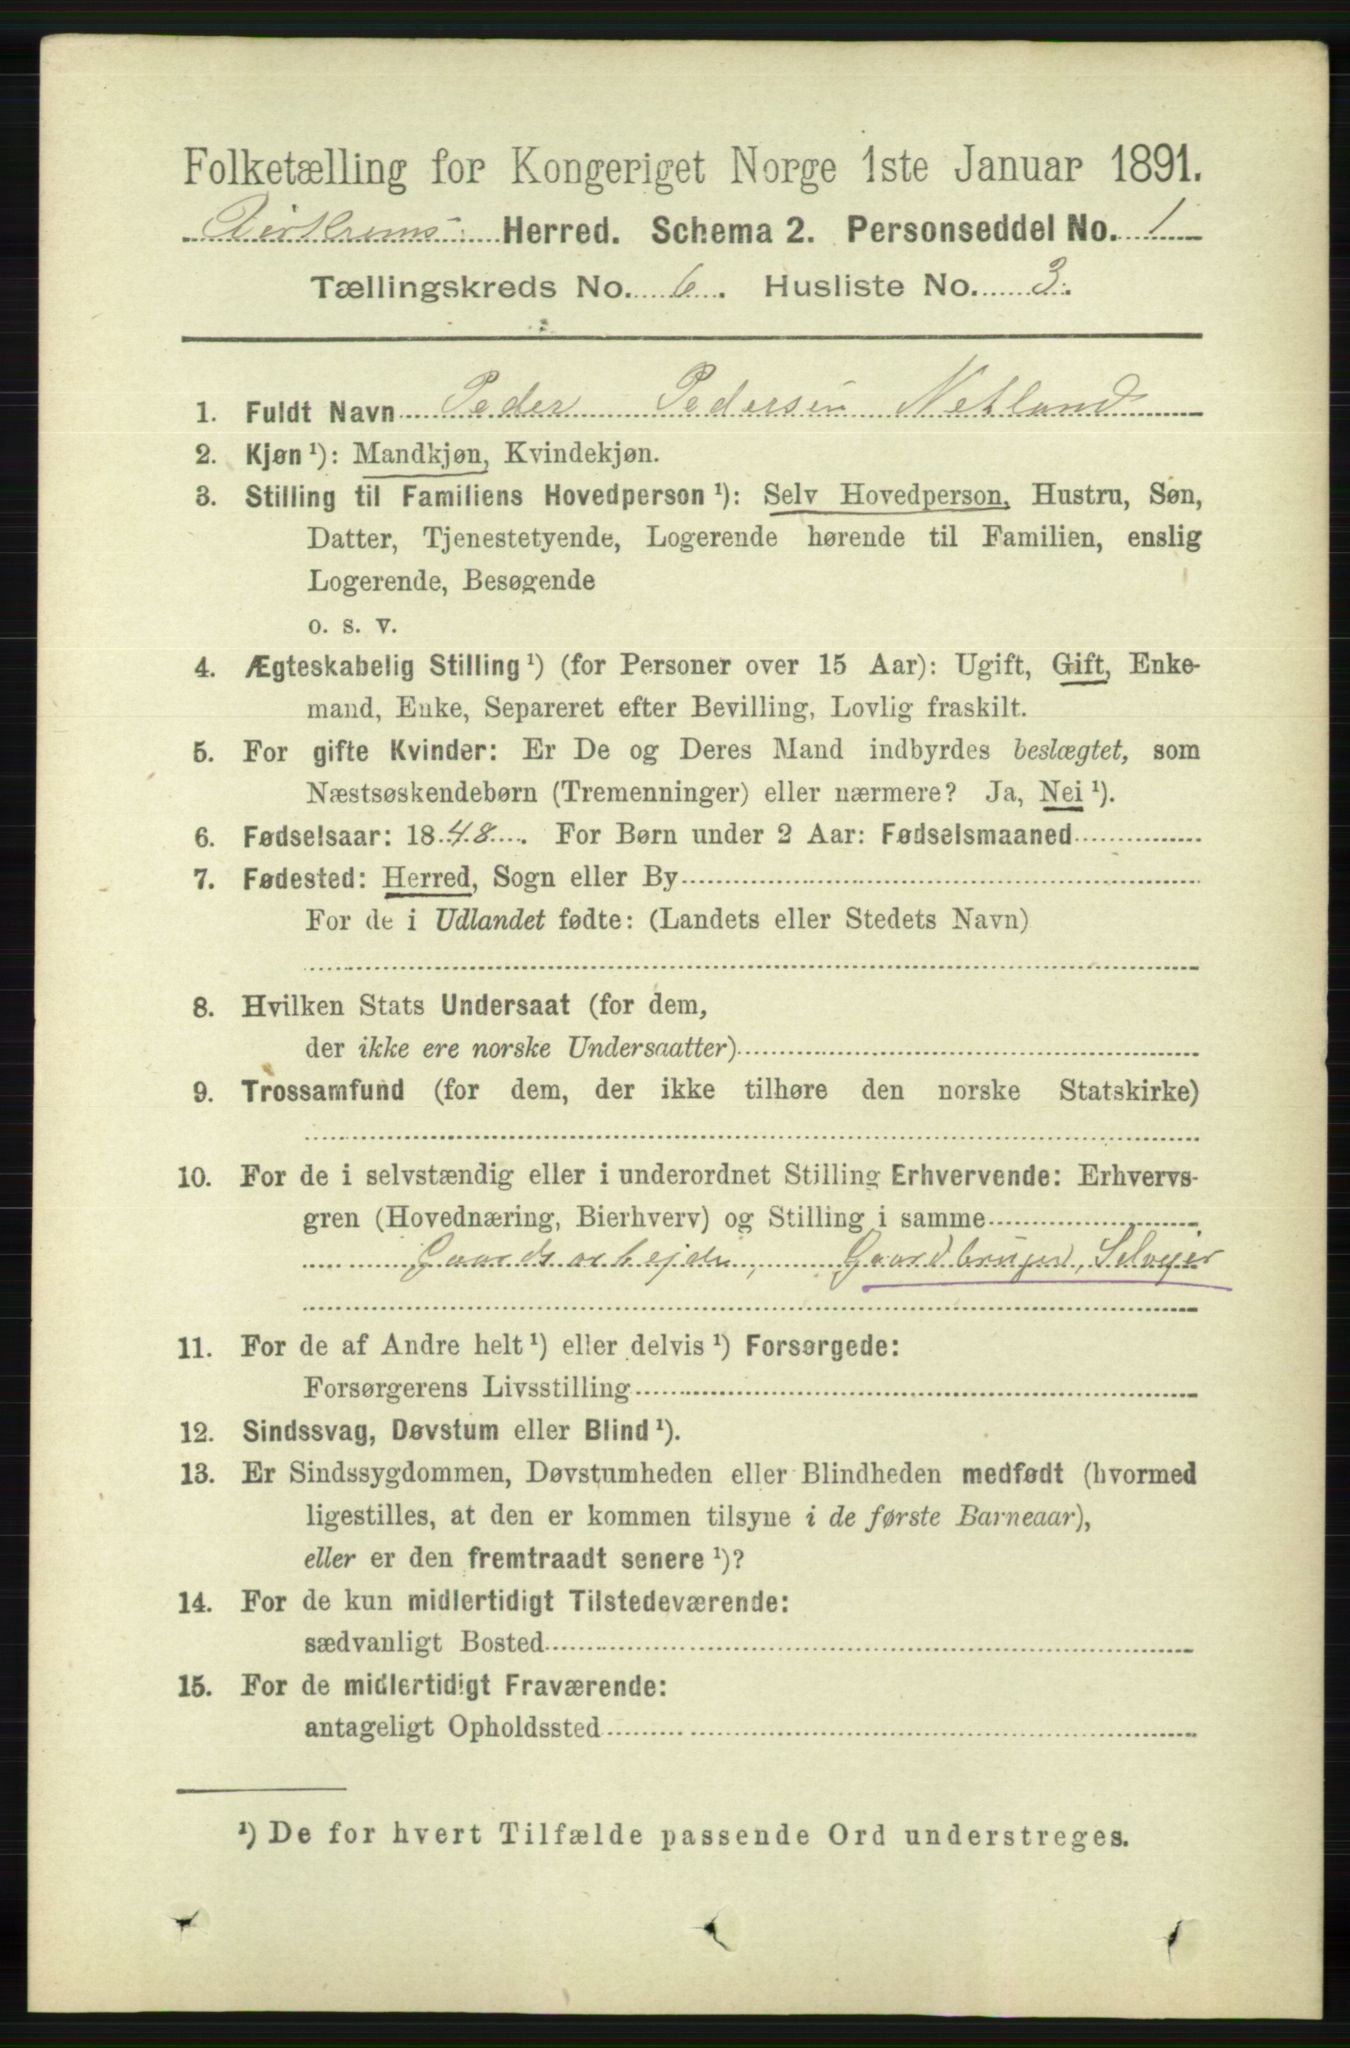 Folketælling for Kongeriget Norge 1ste Januar 1891.
Birkrems Herred. Schema 2. Personseddel No. 1
Tællingskreds No. 6. Husliste No. 3.
1. Fuldt Navn Peder Pedersen Netland
2. Kjøn ¹): Mandkjøn, Kvindekjøn.
3. Stilling til Familiens Hovedperson ¹): Selv Hovedperson, Hustru, Søn,
Datter, Tjenestetyende, Logerende hørende til Familien, enslig
Logerende, Besøgende
o. s. v.
4. Ægteskabelig Stilling ¹) (for Personer over 15 Aar): Ugift, Gift, Enke-
mand, Enke, Separeret efter Bevilling, Lovlig fraskilt.
5. For gifte Kvinder: Er De og Deres Mand indbyrdes beslægtet, som
Næstsøskendebørn (Tremenninger) eller nærmere? Ja, Nei ¹).
6. Fødselsaar: 1848. For Børn under 2 Aar: Fødselsmaaned
7. Fødested: Herred, Sogn eller By
For de i Udlandet fødte: (Landets eller Stedets Navn)
8. Hvilken Stats Undersaat (for dem,
der ikke ere norske Undersaatter)
9. Trossamfund (for dem, der ikke tilhøre den norske Statskirke)
10. For de i selvstændig eller i underordnet Stilling Erhvervende: Erhvervs-
gren (Hovednæring, Bierhverv) og Stilling i samme
Gaardsarbejde, Gaardbruger, Selveier
11. For de af Andre helt ¹) eller delvis ¹) Forsørgede:
Forsørgerens Livsstilling
12. Sindssvag, Døvstum eller Blind ¹).
13. Er Sindssygdommen, Døvstumheden eller Blindheden medfødt (hvormed
ligestilles, at den er kommen tilsyne i de første Barneaar),
eller er den fremtraadt senere ¹)?
14. For de kun midlertidigt Tilstedeværende:
sædvanligt Bosted
15. For de midlertidigt Fraværende:
antageligt Opholdssted
¹) De for hvert Tilfælde passende Ord understreges.